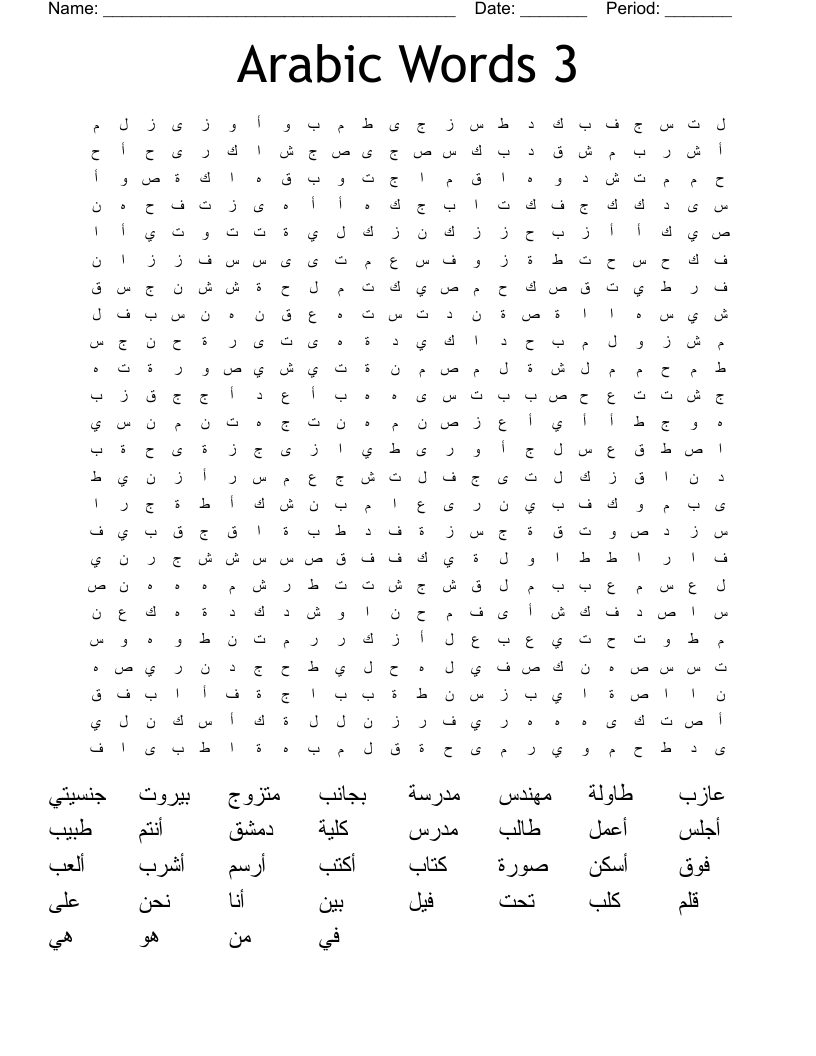 Name: ______________________________________ Date: _______ Period: _______
Arabic Words 3
ل ت س ج ف ب ك د ط س ز ج ى ط م ب و أ و ز ى ز ل م
أ ش ر ب م ش ق د ب ك س ص ج ى ص ج ش ا ك ر ى ح أ ح
ح م م ت ش د و ه ا ق م ا ج ت و ب ق ه ا ك ة ص و أ
س ى د ك ك ج ف ك ت ا ب ج ك ه أ أ ه ى ز ت ف ح ه ن
ص ي ك أ أ ز ب ح ز ز ك ن ز ك ل ي ة ت ت و ت ي أ ا
ف ك ح س ح ت ط ة ز و ف س ع م ت ى ى س س ف ز ز ا ن
ف ر ط ي ت ق ص ك ح م ص ي ك ت م ل ح ة ش ش ن ج س ق
ش ي س ه ا ا ة ص ة ن د ت س ت ه ع ق ن ه ن س ب ف ل
م ش ز و ل م ب ح د ا ك ي د ة ه ى ت ى ر ة ح ن ج س
ط م ح م م ل ش ة ل م ص م ن ة ت ي ش ي ص و ر ة ت ه
ج ش ت ت ع ح ص ب ب ت س ى ه ه ب أ ع د أ ج ج ق ز ب
ه و ج ط أ أ ي أ ع ز ص ن م ه ن ت ج ه ت ن م ن س ي
ا ص ط ق ع س ل ج أ و ر ى ط ي ا ز ى ج ز ة ى ح ة ب
د ن ا ق ز ك ل ت ى ج ف ل ت ش ج ع م س ر أ ز ن ي ط
ى ب م و ك ف ب ي ن ر ى ع ا م ب ن ش ك أ ط ة ج ر ا
س ز د ص و ت ق ة ج س ز ة ف د ط ب ة ا ق ج ق ب ي ف
ف ا ر ا ط ط ا و ل ة ي ك ف ف ق ص س س ش ش ج ر ن ي
ل ع س م ع ب ب م ل ق ش ج ش ت ت ط ر ش م ه ه ه ن ص
س ا ص د ف ك ش أ ى ف م ح ن ا و ش د ك د ة ه ك ع ن
م ط و ت ح ت ي ع ب ع ل أ ز ك ر ر م ت ن ط و ه و س
ت س س ص ه ن ك ص ف ي ل ه ح ل ي ط ح ج د ن ر ي ص ه
ن ا ا ص ة ا ي ب ز س ن ط ة ب ب ا ج ة ف أ ا ب ف ق
أ ص ت ك ى ه ه ه ر ي ف ر ز ن ل ل ة ك أ س ك ن ل ي
ى د ط ح م و ي ر م ى ح ة ق ل م ب ه ة ا ط ب ى ا ف
عازب طاولة مهندس مدرسة بجانب متزوج بيروت جنسيتي
أجلس أعمل طالب مدرس كلية دمشق أنتم طبيب
فوق أسكن صورة كتاب أكتب أرسم أشرب ألعب
قلم كلب تحت فيل بين أنا نحن على
في من هو هي